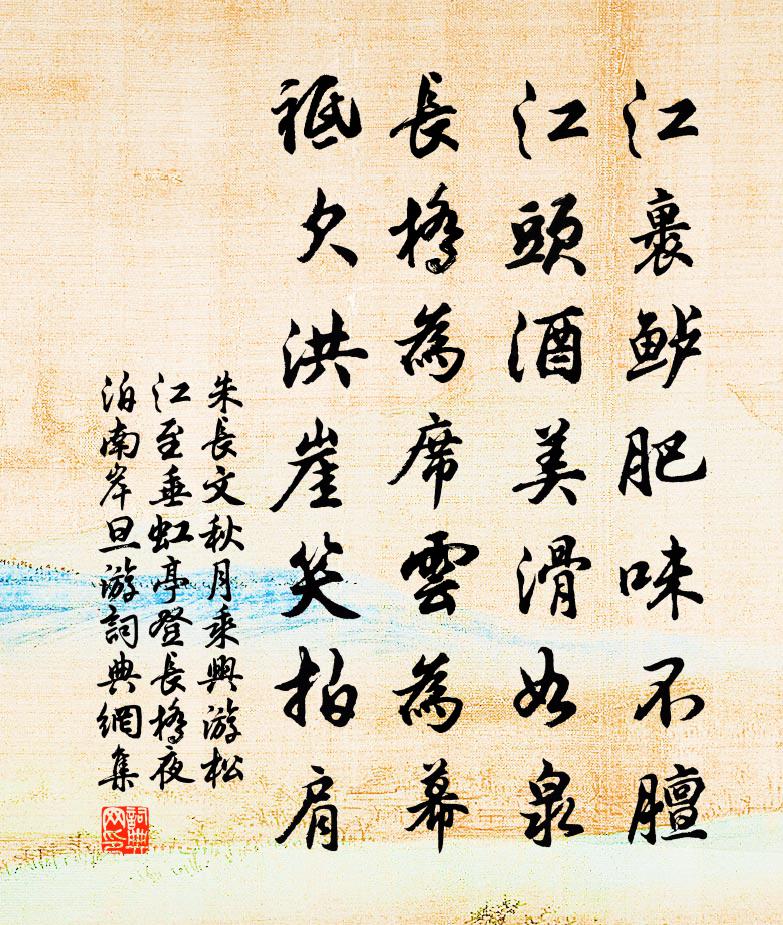 江裹鲈肥味不膻
江頭酒美滑如泉
長橋為席雲為幕
祗欠洪崖笑拍肩
朱長文秋月乘興游松
江至垂虹亭登長橋夜
泊南岸旦游詞典網集
詞典